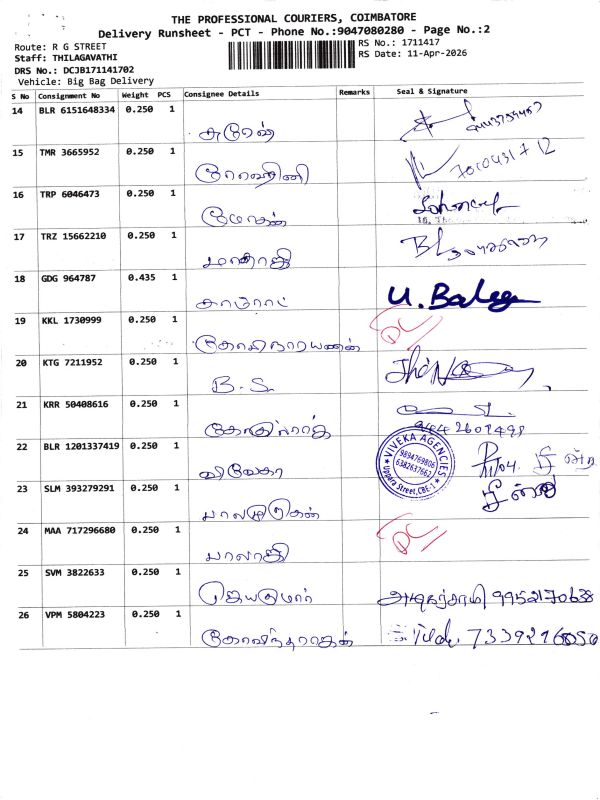 THE PROFESSIONAL COURIERS, COIMBATORE
Delivery Runsheet - PCT - Phone No.:9047080280 - Page No.:2
Route: R G STREET
RS No.: 1711417
Staff: THILAGAVATHI
RS Date: 11-Apr-2026
DRS No.: DCJB171141702
Vehicle: Big Bag Delivery
S No Consignment No Weight PCS Consignee Details Remarks Seal & Signature
14 BLR 6151648334 0.250 1 சுரேஷ்
15 TMR 3665952 0.250 1 7010431712
16 TRP 6046473 0.250 1 மோகன்
17 TRZ 15662210 0.250 1 பாலாஜி
18 GDG 964787 0.435 1 U. Balaga
19 KKL 1730999 0.250 1 DC
20 KTG 7211952 0.250 1 B.S.
21 KRR 50408616 0.250 1 9442601498
22 BLR 1201337419 0.250 1 விவேகா
VIVEKA AGENCIES
9894769806
6382637662
Uppara Street, CBE-1
23 SLM 393279291 0.250 1 பாலமுருகன்
24 MAA 717296680 0.250 1 பாலாஜி DC
25 SVM 3822633 0.250 1 ஜெயகுமார் 9952170638
26 VPM 5804223 0.250 1 கோவிந்தராஜன் 7339216050